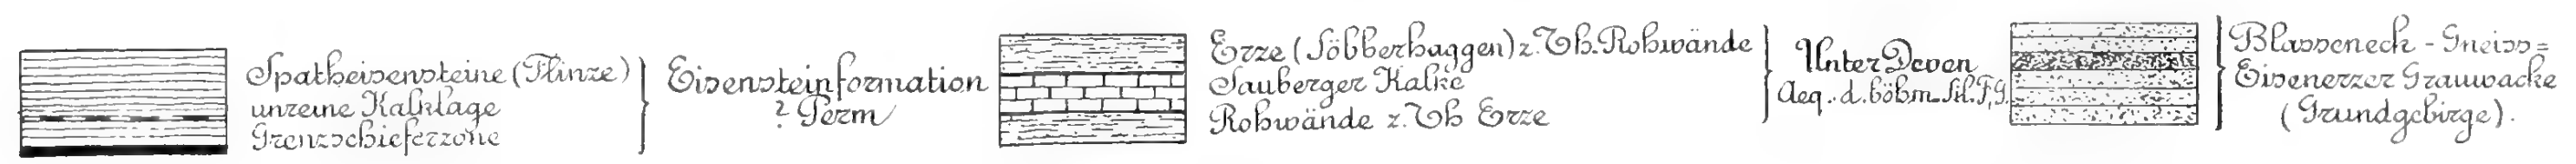 Spatheisensteine (Flinze)
unreine Kalklage
Grenzschieferzone
Eisensteinformation
? Perm
Erze (Söbberhaggen) z. Th. Rohwände
Sauberger Kalke
Rohwände z. Th Erze
Unter Devon
Aeq. d. böhm. Sil. F, G.
Blasseneck - Gneiss=
Eisenerzer Grauwacke
(Grundgebirge).